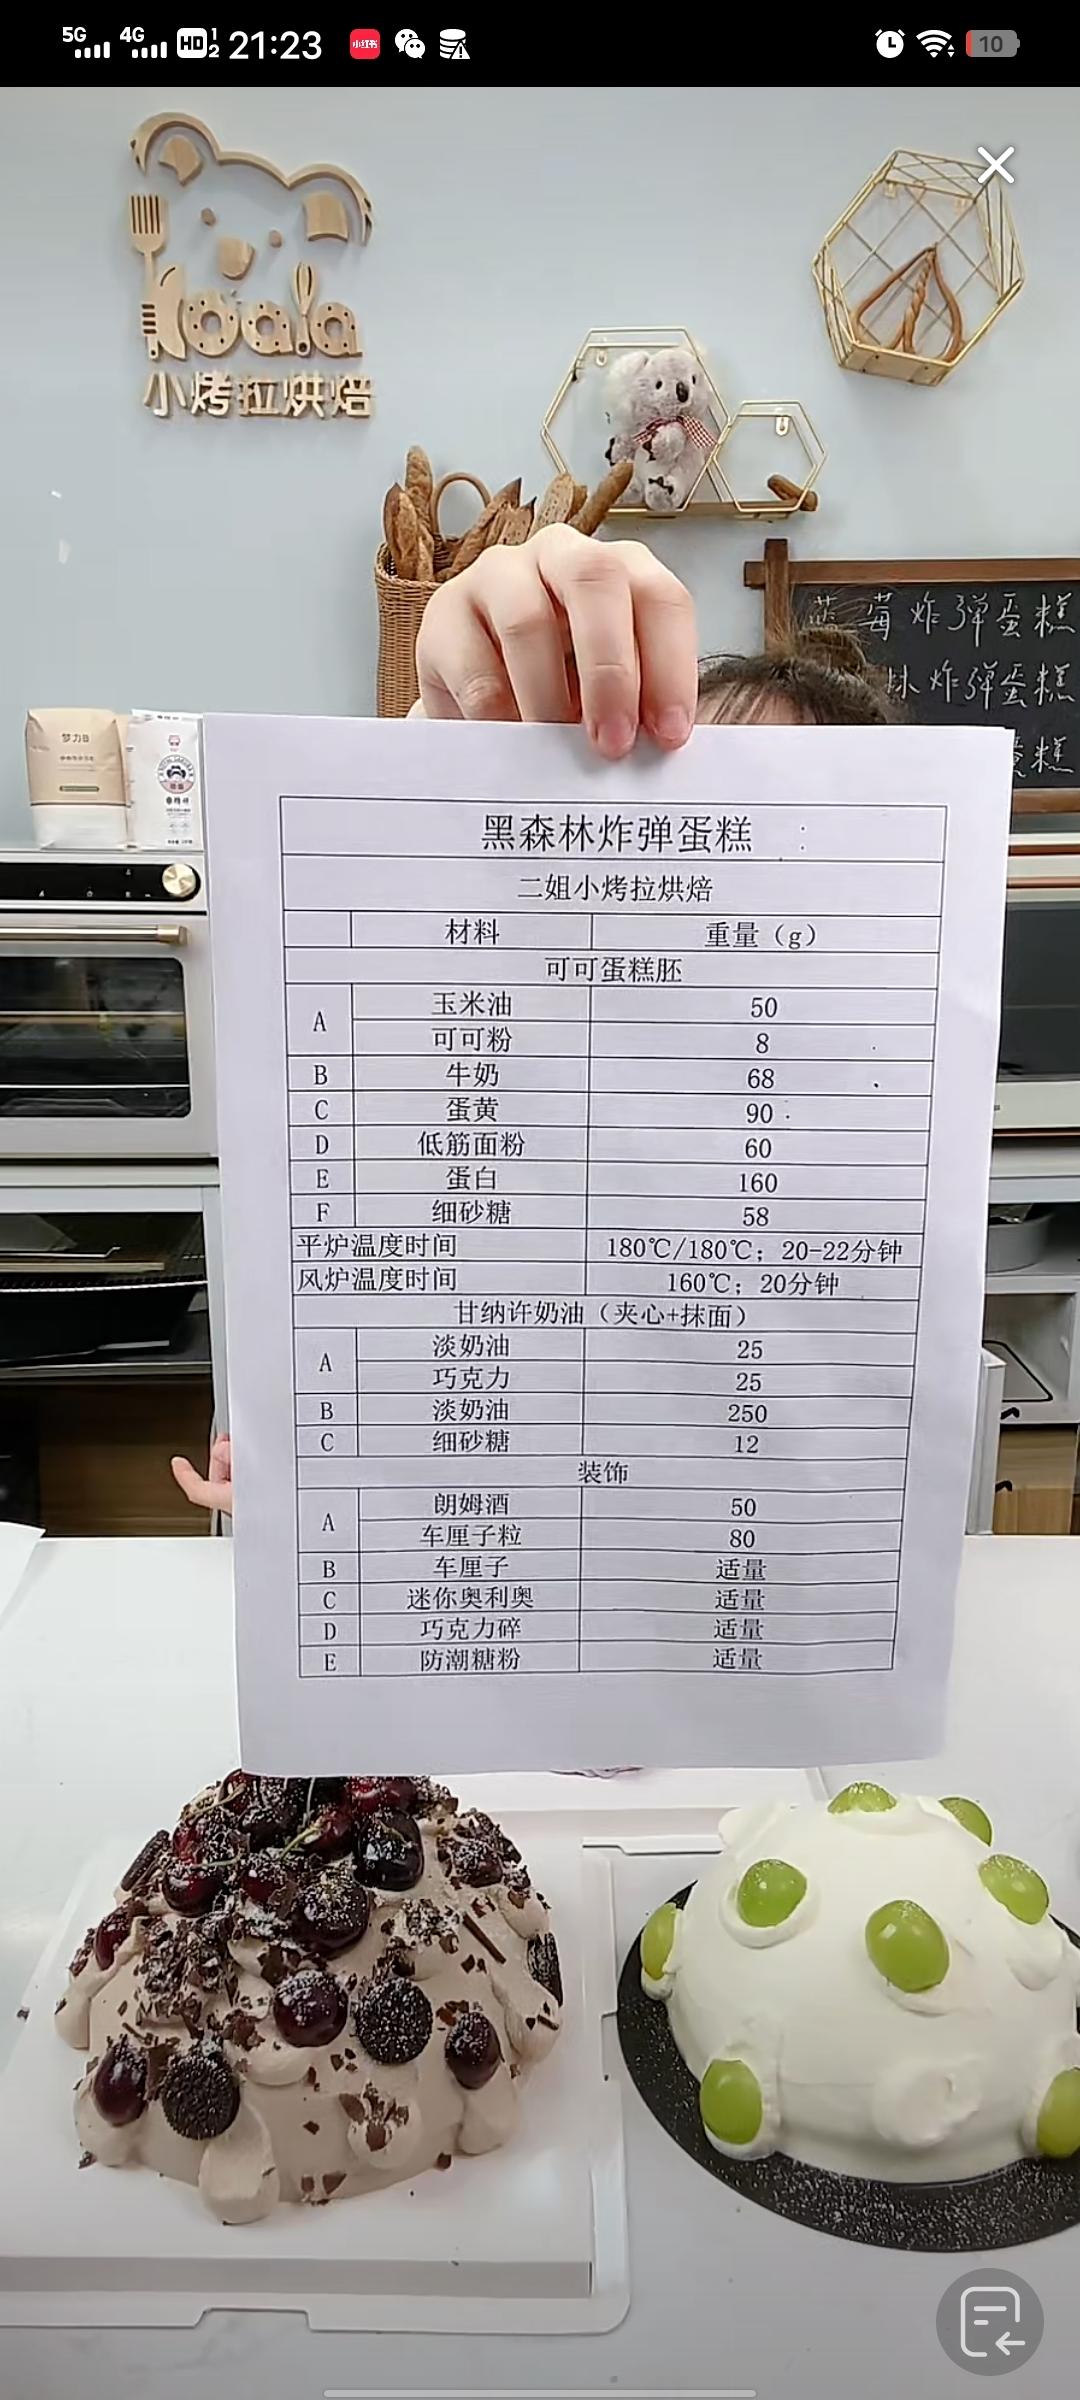 5G 4G HD 1 2 21:23 小红书 10
Koala
小烤拉烘焙
蓝莓炸弹蛋糕
林炸弹蛋糕
糕
梦力B
黑森林炸弹蛋糕
二姐小烤拉烘焙
材料 重量（g）
可可蛋糕胚
A 玉米油 50
可可粉 8
B 牛奶 68
C 蛋黄 90
D 低筋面粉 60
E 蛋白 160
F 细砂糖 58
平炉温度时间 180℃/180℃；20-22分钟
风炉温度时间 160℃；20分钟
甘纳许奶油（夹心+抹面）
A 淡奶油 25
巧克力 25
B 淡奶油 250
C 细砂糖 12
装饰
A 朗姆酒 50
车厘子粒 80
B 车厘子 适量
C 迷你奥利奥 适量
D 巧克力碎 适量
E 防潮糖粉 适量